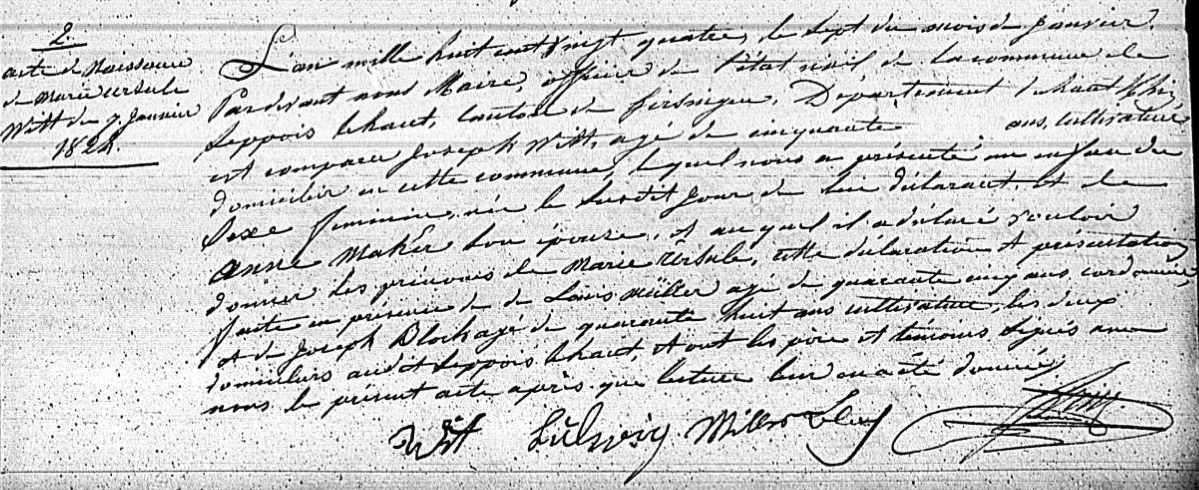 2.
acte de Naissance
de Marie Ursule
Witt du 7 Janvier
1824.
L'an mille huit cent vingt quatre, le sept du mois de Janvier.
Pardevant nous Maire, officier de l'état civil de la commune de
Seppois lehaut, canton de hirsingen, Département duhaut Rhin,
est comparu Joseph Witt, agé de cinquante ans, cultivateur
domicilié en cette commune, lequel nous a présenté un enfan du
Sexe feminin, née le susdit jour de lui déclarant, et de
Anne Maker Son épouse, et auquel il a déclaré vouloir
donner les prénoms de Marie Ursule, cette déclaration et présentation
faite en présence de de Louis Müller agé de quarante cinq ans cordonnier,
et de Joseph Bloch agé de quarante huit ans cultivateur, les deux
domiciliers audit Seppois lehaut, et ont les père et témoins signés avec
nous le présent acte après que lecture leur en a été donnée
Witt Miller